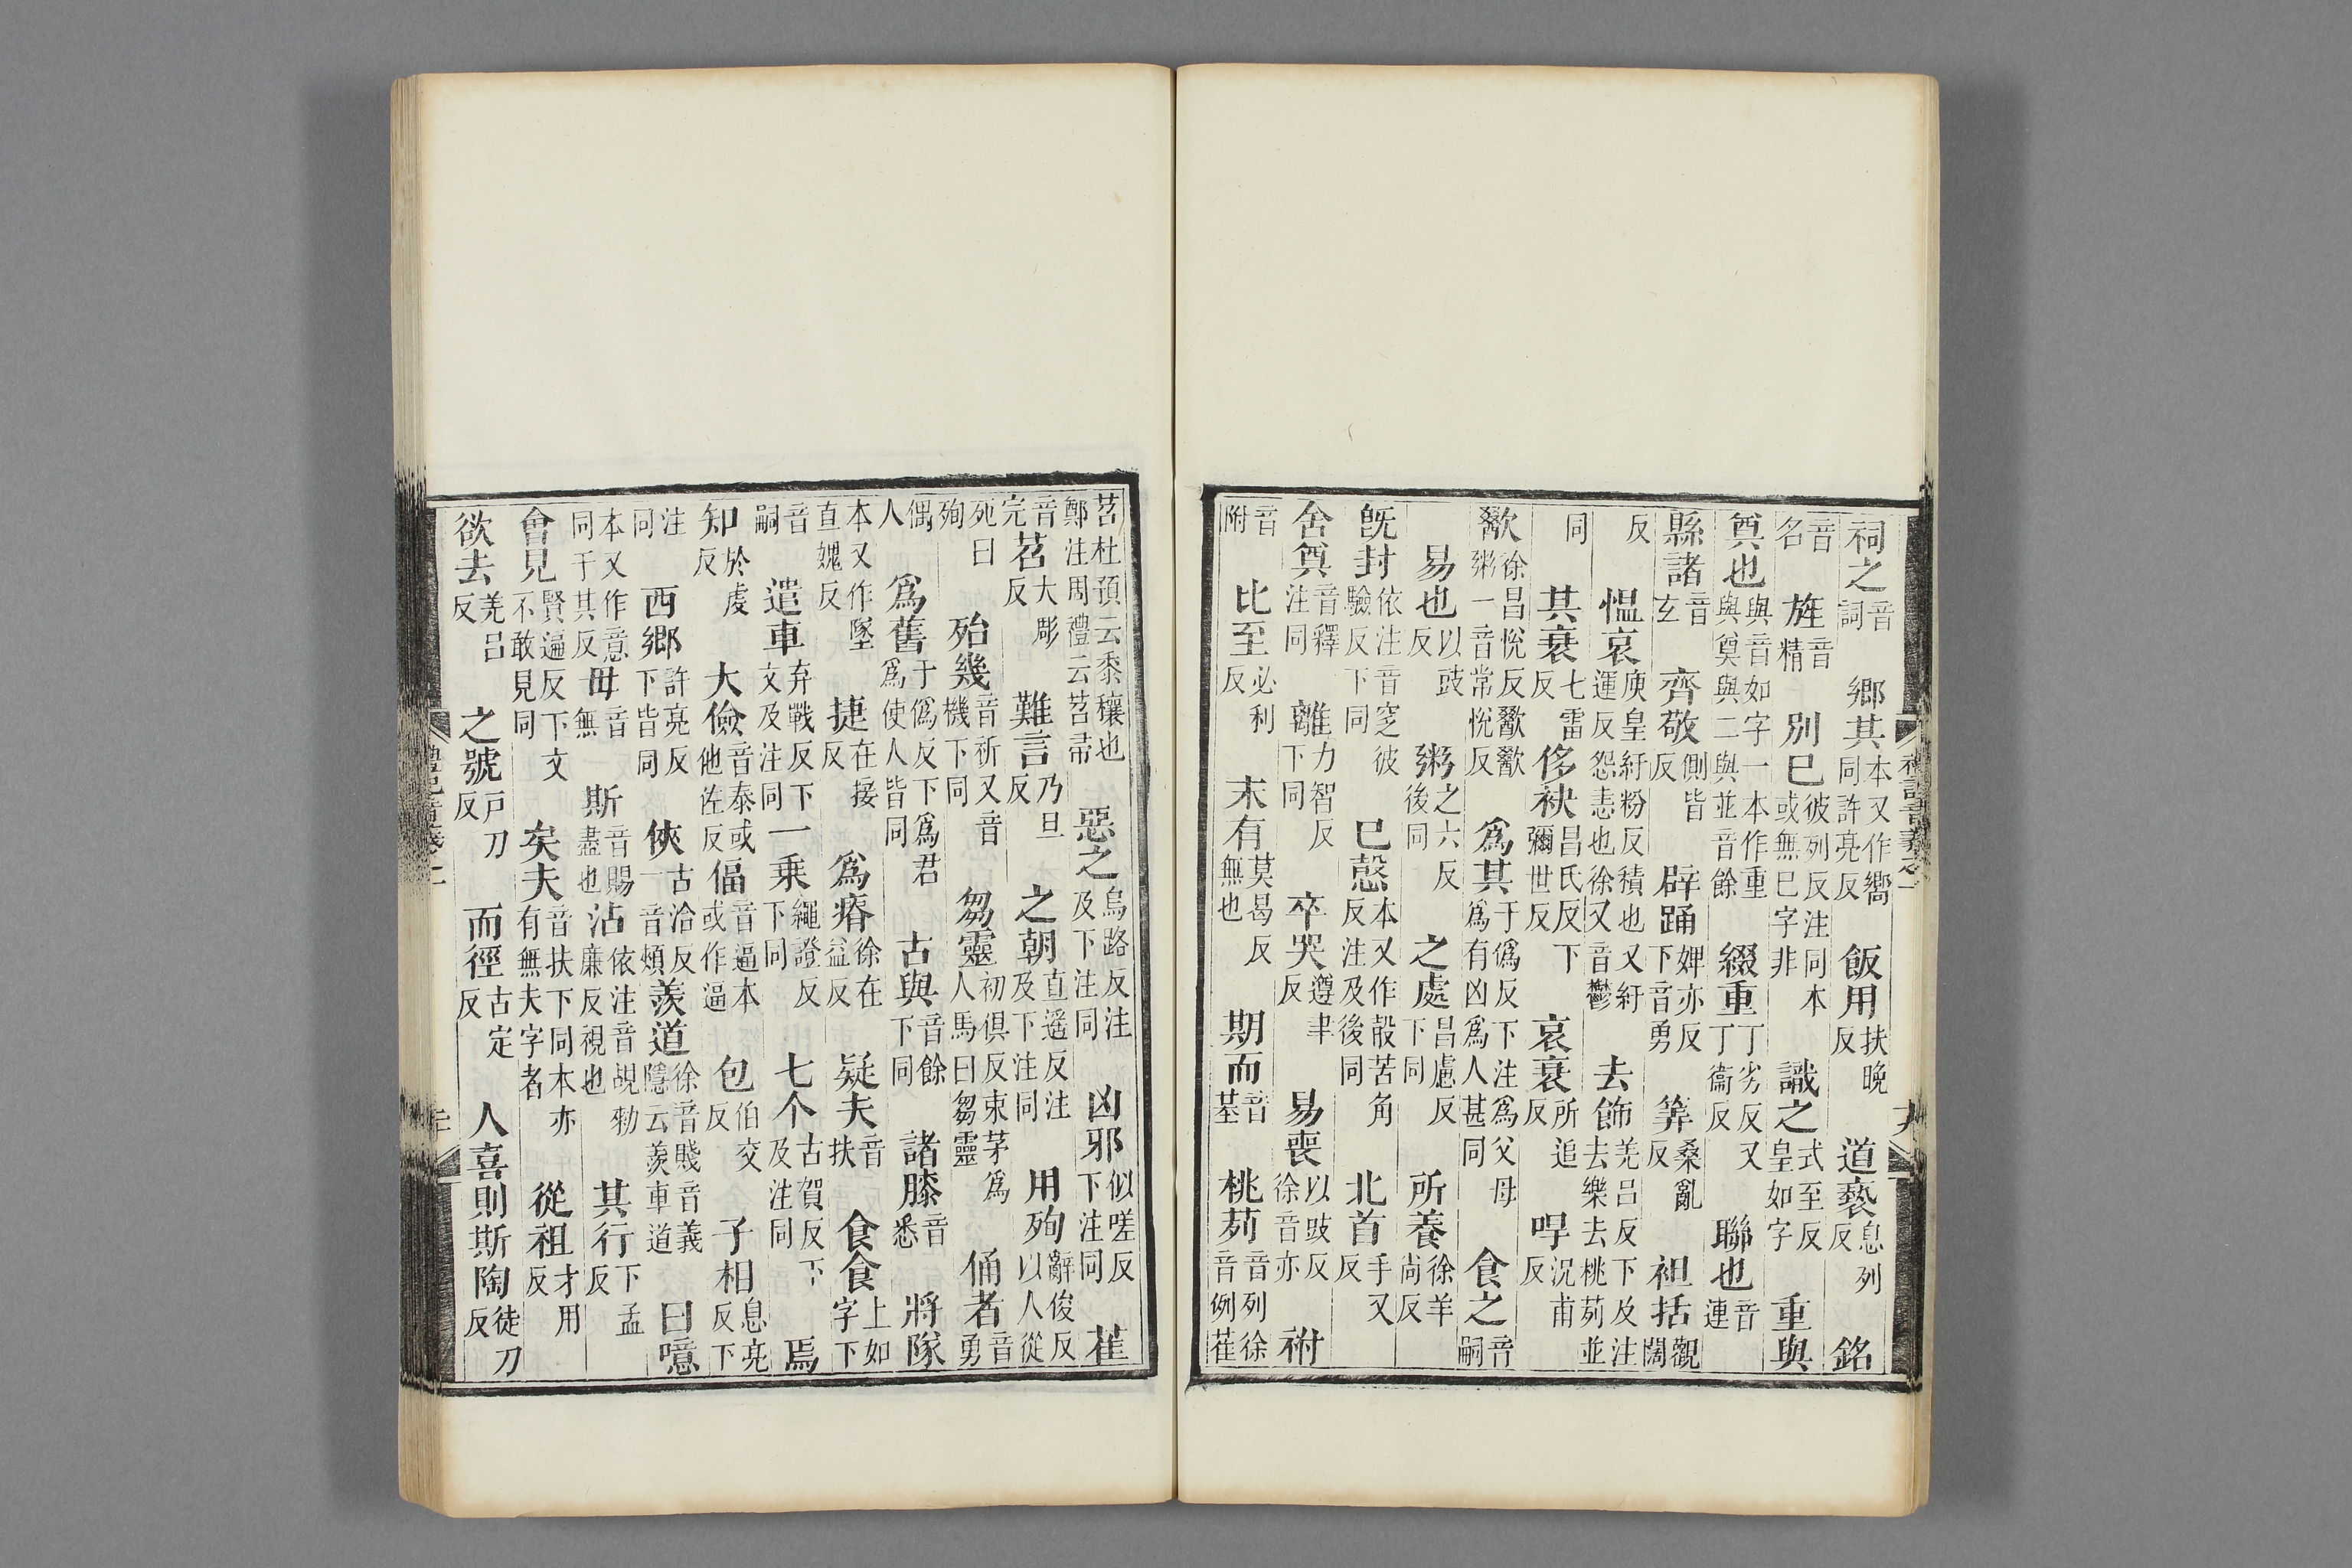 祠之音詞鄉其本又作嚮同許亮反飯用扶晚反道褻息列反銘
音名旌音精別巳彼列反注同本或無巳字非識之式至反皇如字重與
奠也與音如字一本作重與奠與二與並音餘綴重丁劣反又丁衞反聯也音連
縣諸音玄齊敬側皆反辟踊婢亦反下音勇筭桑亂反袒括觀闊
反慍哀庾皇紆粉反積也又紆運反怨恚也徐又音鬱去飾羌呂反下及注去樂去桃茢並
同其衰七雷反侈袂昌氏反下彌世反哀衰所追反哻況甫反
歠徐昌悅反歠歠粥一音常悅反爲其于僞反下注爲父母爲有凶爲人甚同食之音嗣
易也以豉反粥之六反後同之處昌慮反下同所養徐羊尚反
旣封依注音窆彼驗反下同巳慤本又作㱿苦角反注及後同北首手又反
舍奠音釋注同離力智反下同卒哭遵聿反易喪以豉反徐音亦祔
音附比至必利反末有莫曷反無也期而音基桃茢音列徐音例萑
苕杜預云黍穰也鄭注周禮云苕帚惡之烏路反注及下注同凶邪似嗟反下注同萑
音完苕大彫反難言乃旦反之朝直遙反注及下注同用殉辭俊反以人從
死曰殉殆幾音祈又音機下同芻靈初俱反束茅爲人馬曰芻靈俑者音勇
偶人爲舊于僞反下爲君爲使人皆同古與音餘下同諸膝音悉將隊
本又作墜直媿反捷在接反爲瘠徐在益反疑夫音扶食食上如字下
音嗣遣車弃戰反下文及注同一乗繩證反下同七个古賀反下及注同焉
知於虔反大儉音泰或他佐反偪音逼本或作逼包伯交反子相息亮反下
注同西鄉許亮反下皆同俠古洽反一音頰羨道徐音賤音義隱云羨車道曰噫
本又作意同于其反毋音無斯音賜盡也沾依注音覘勑廉反視也其行下孟反
會見賢遍反下文不敢見同矣夫音扶下同本亦有無夫字者從祖才用反
欲去羌呂反之號戶刀反而徑古定反人喜則斯陶徒刀反